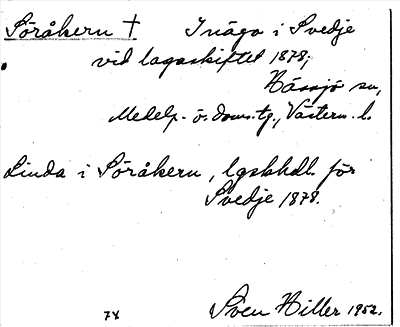 Söråkern † Inägo i Svedje
vid lagaskiftet 1878;
Hässjö sn,
Medelp. ö. doms.tg., Västern. l.
Linda i Söråkern, lgskhdl. för
Svedje 1878.
78 Sven Hiller 1952.